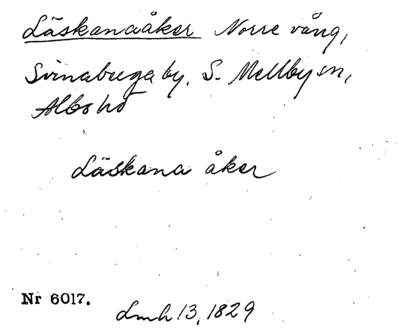 Läskanaåker Norre vång,
Svinaberga by. S. Mellby sn,
Albo hd
Läskana åker
Nr 6017.
Lmh 13, 1829